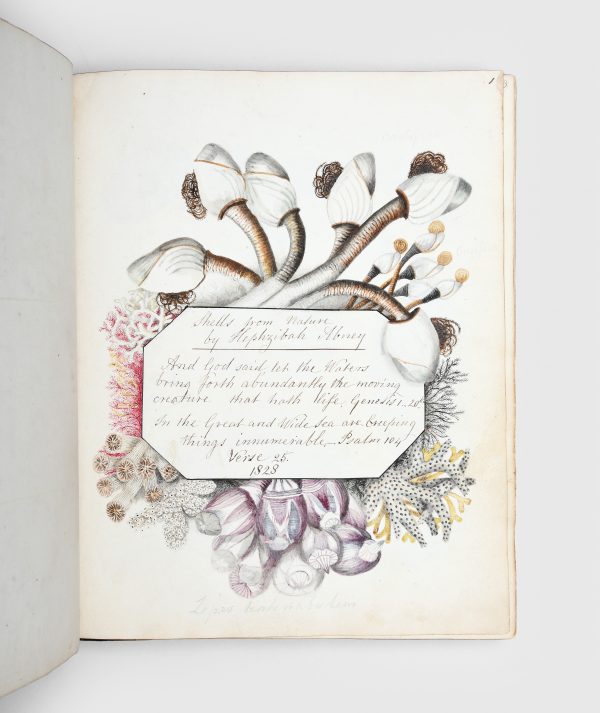 Shells from Nature
by Hephzibah Abney
And God said, let the Waters
bring forth abundantly the moving
creature that hath life. Genesis 1_20
In the Great and Wide Sea are creeping
things innumerable_ Psalm 104
Verse 25.
1828